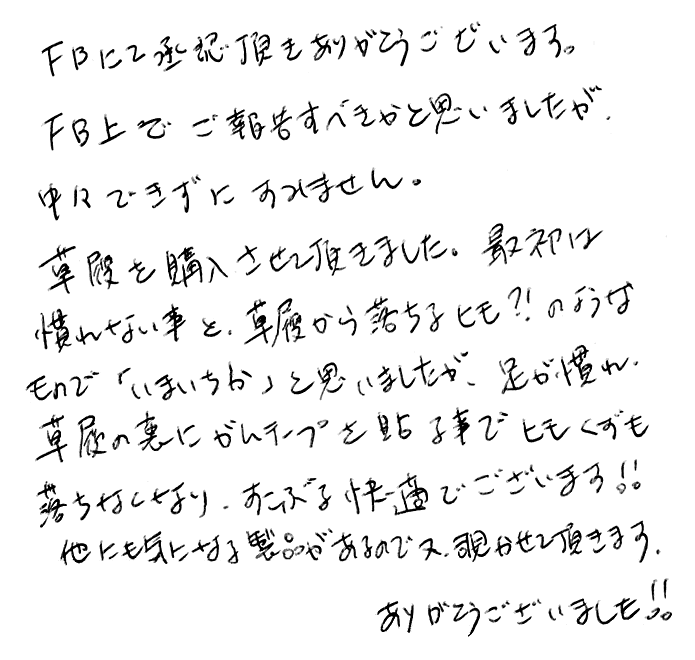 FBにて承認頂きありがとうございます。
FB上でご報告すべきかと思いましたが、
中々できずにすみません。
草履を購入させて頂きました。最初は
慣れない事と、草履から落ちるヒモ?!のような
モノで「いまいちか」と思いましたが、足が慣れ、
草履の裏にがムテープを貼る事でヒモくずも
落ちなくなり、すこぶる快適でございます!!
他にも気になる製品があるので又、覗かせて頂きます。
ありがとうございました!!